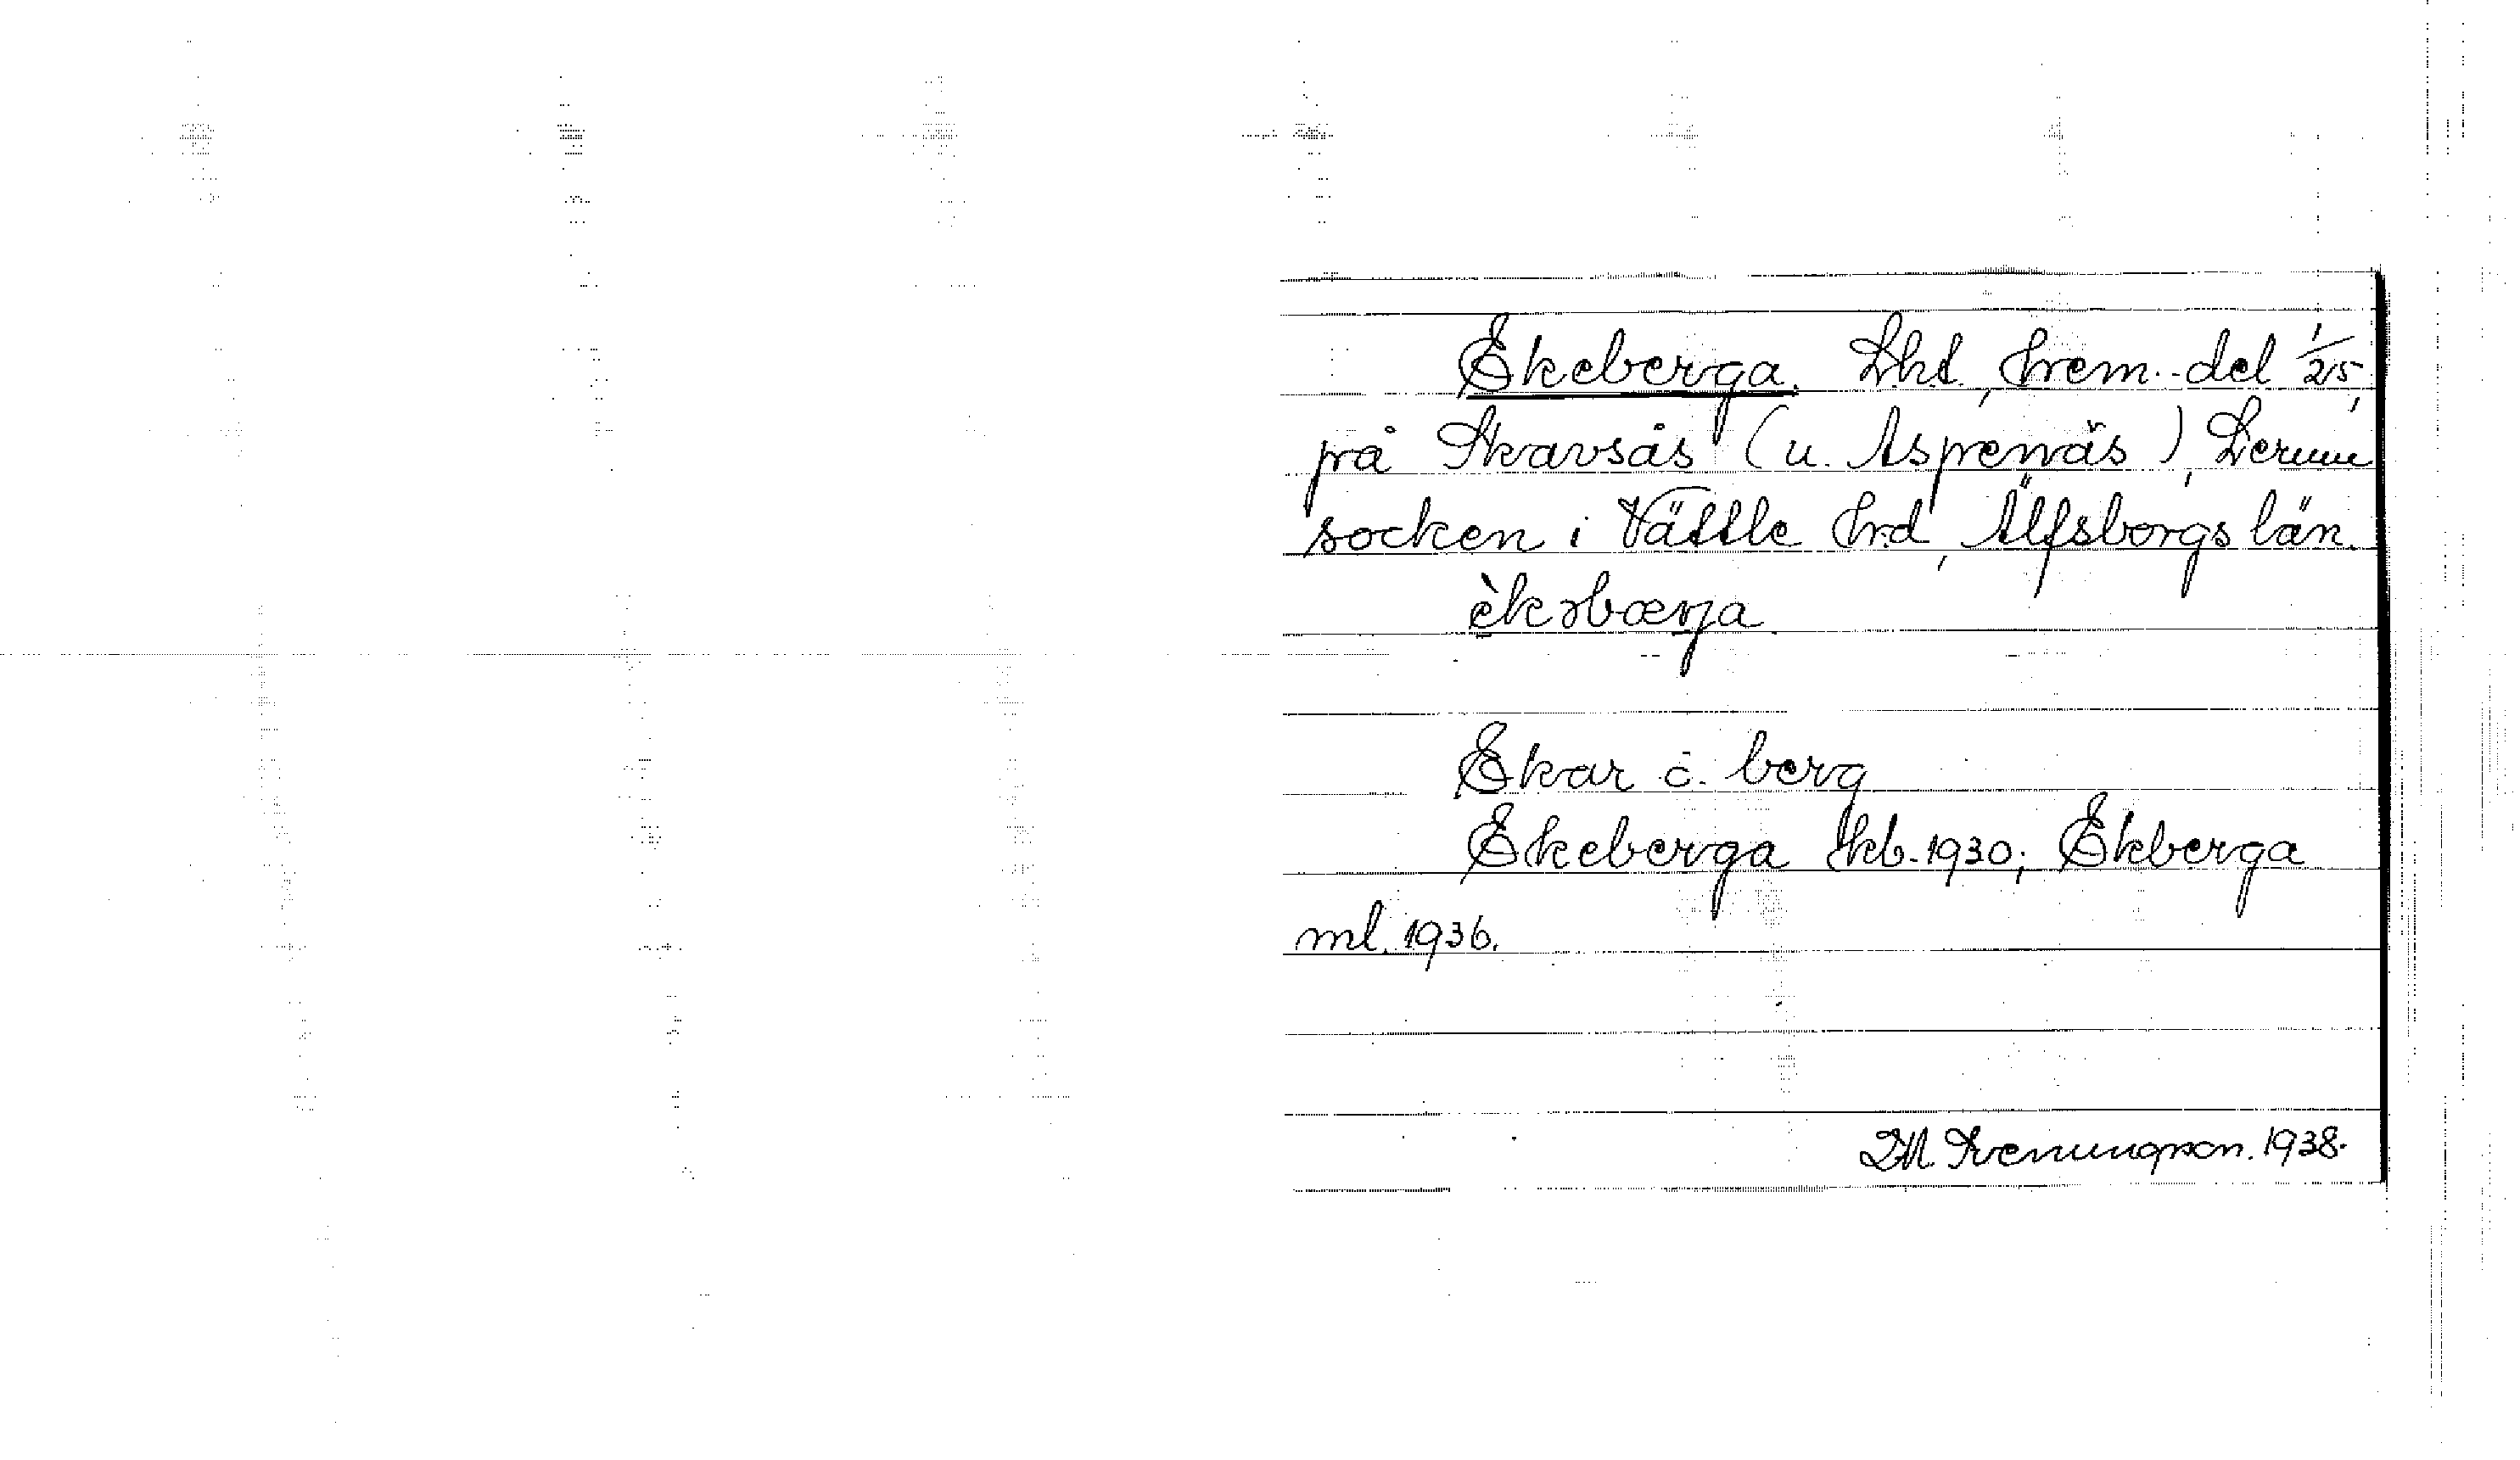 Ekeberga. Lht, hem. del 1/25,
på Skavsås (u. Aspenäs), Lerums
socken i Vättle hrd, Älfsborgs län.
èkəbærja
Ekar o. berg
Ekeberga kb. 1930; Ekberga
ml. 1936.
Svenungson. 1938.